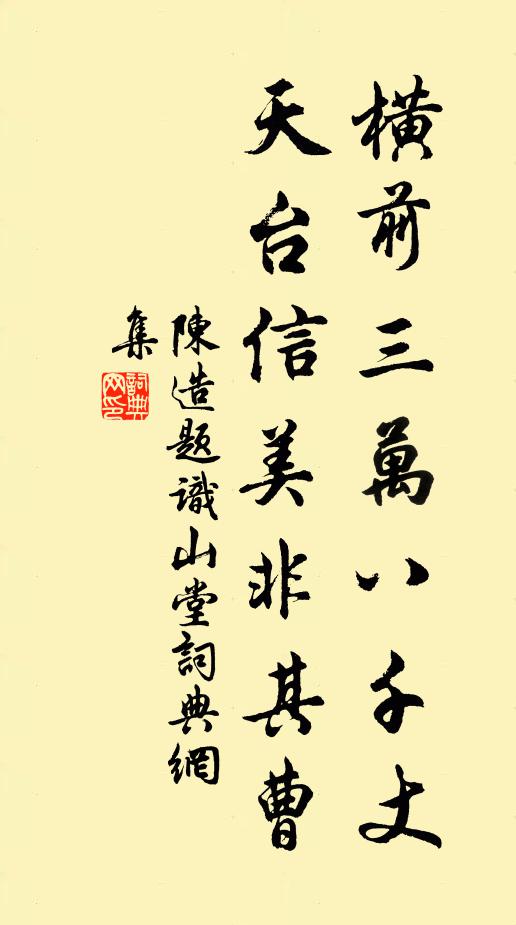 橫前三萬八千丈
天台信美非其曹
陳造題識山堂詞典網
集
詞典
网印